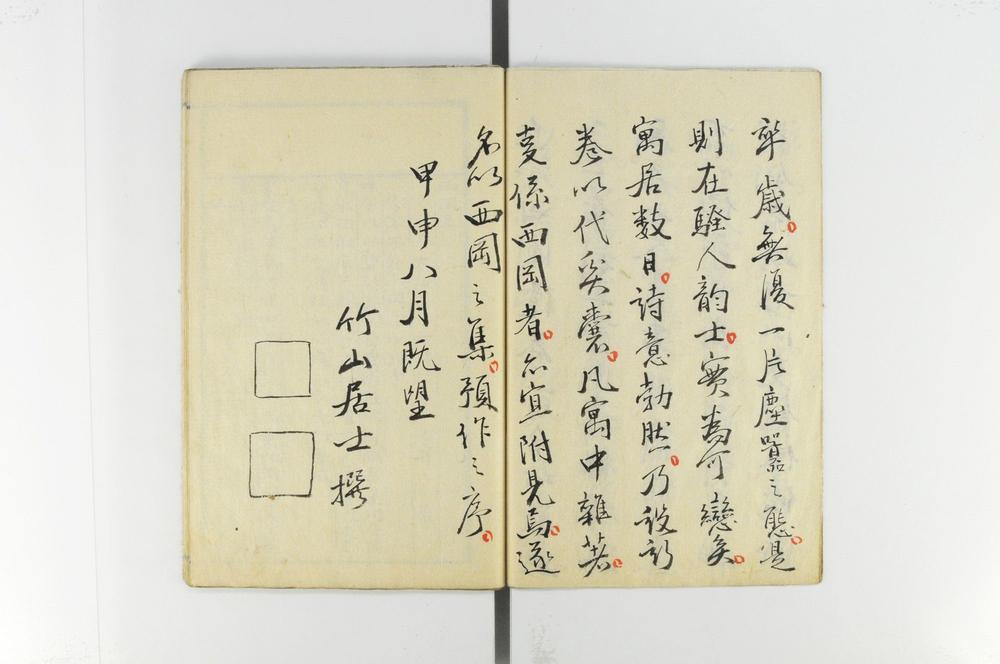 卒歳。無復一片塵囂之態。是
則在騷人韵士。實為可戀矣。
寓居数日。詩意勃然。乃設新
卷以代奚囊。凡寓中雜著。
支係西岡者。亦宜附見焉。遂
名以西岡之集。預作之序。
甲申八月既望
竹山居士撰